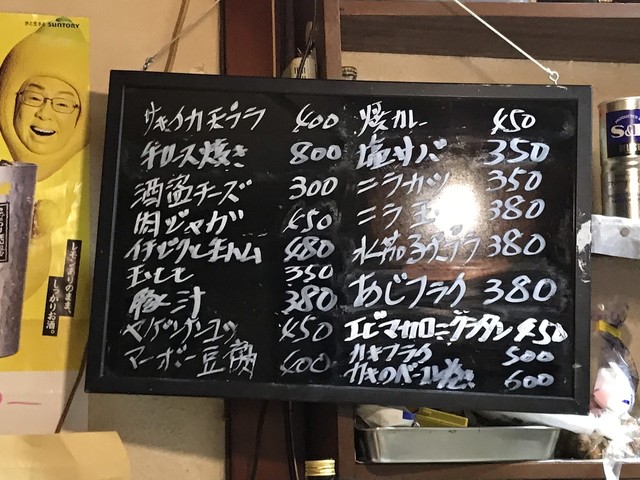 水と生きる SUNTORY
サキイカ天プラ 400
牛ロース焼き 800
酒盗チーズ 300
肉ジャガ 450
イチジクと生ハム 480
350
豚汁 380
450
マーボー豆腐 400
焼カレー 450
塩サバ 350
ニラカツ 350
ニラ玉 380
380
あじフライ 380
エビマカロニグラタン 450
カキフライ 500
カキの 600
レモンありのまま、
しっかりお酒。
S&B